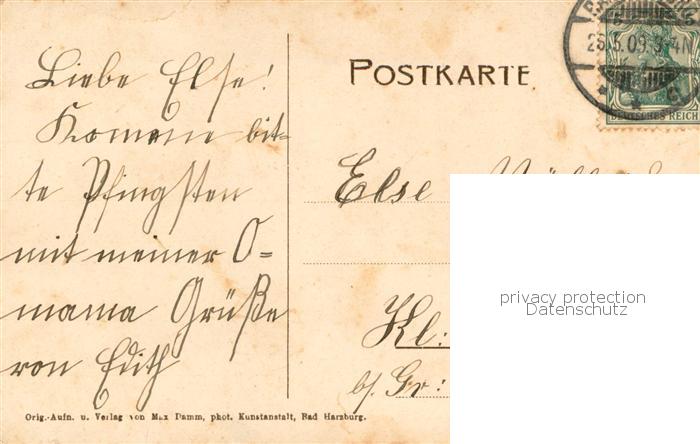 Liebe Else!
Komme bit-
te Pfingsten
mit meiner O=
mama Grüße
von Edith
POSTKARTE
DEUTSCHES REICH
Else
Kl:
b/ Gr:
privacy protection
Datenschutz
Orig.-Aufn. u. Verlag von Max Damm, phot. Kunstanstalt, Bad Harzburg.